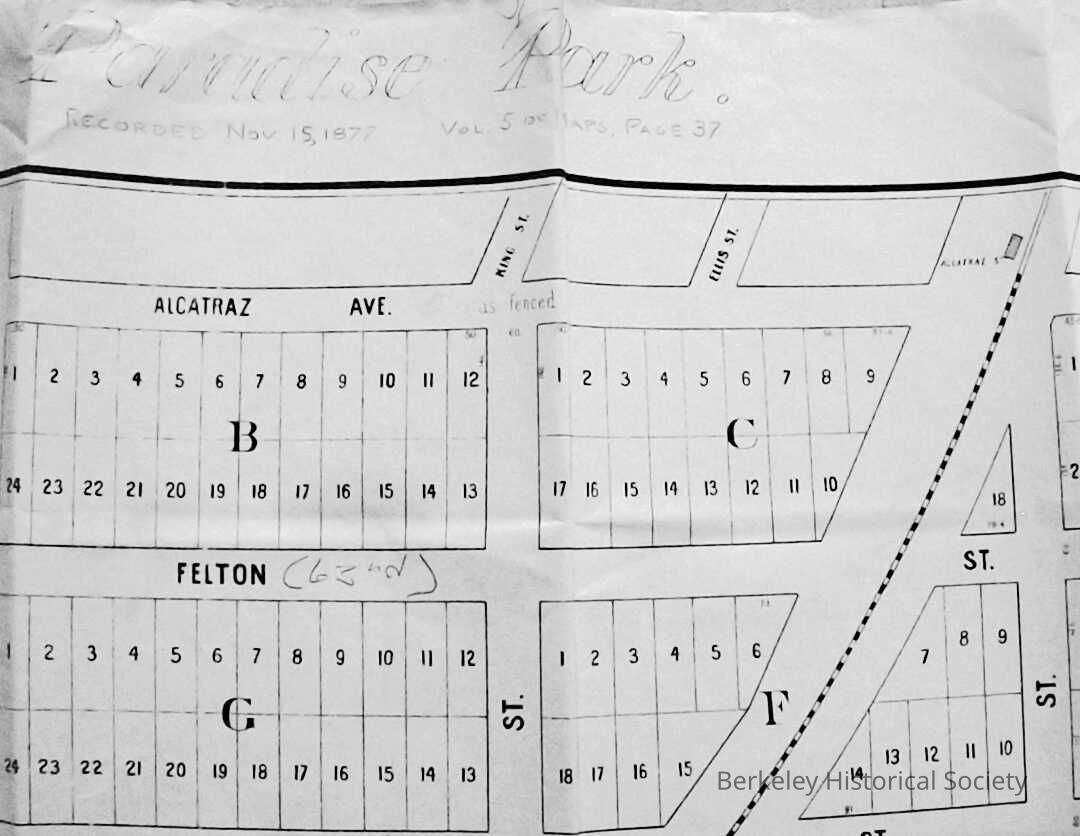 Paradise Park.
RECORDED NOV 15, 1877 VOL. 5 OF MAPS, PAGE 37
KING ST.
ELLIS ST.
ALCATRAZ S
ALCATRAZ AVE. as fenced
1 2 3 4 5 6 7 8 9 10 11 12
B
24 23 22 21 20 19 18 17 16 15 14 13
1 2 3 4 5 6 7 8 9
C
17 16 15 14 13 12 11 10
18
1
2
FELTON (63nd) ST.
1 2 3 4 5 6 7 8 9 10 11 12
G
24 23 22 21 20 19 18 17 16 15 14 13
ST.
1 2 3 4 5 6
F
18 17 16 15
7 8 9
14 13 12 11 10
ST.
ST.
Berkeley Historical Society